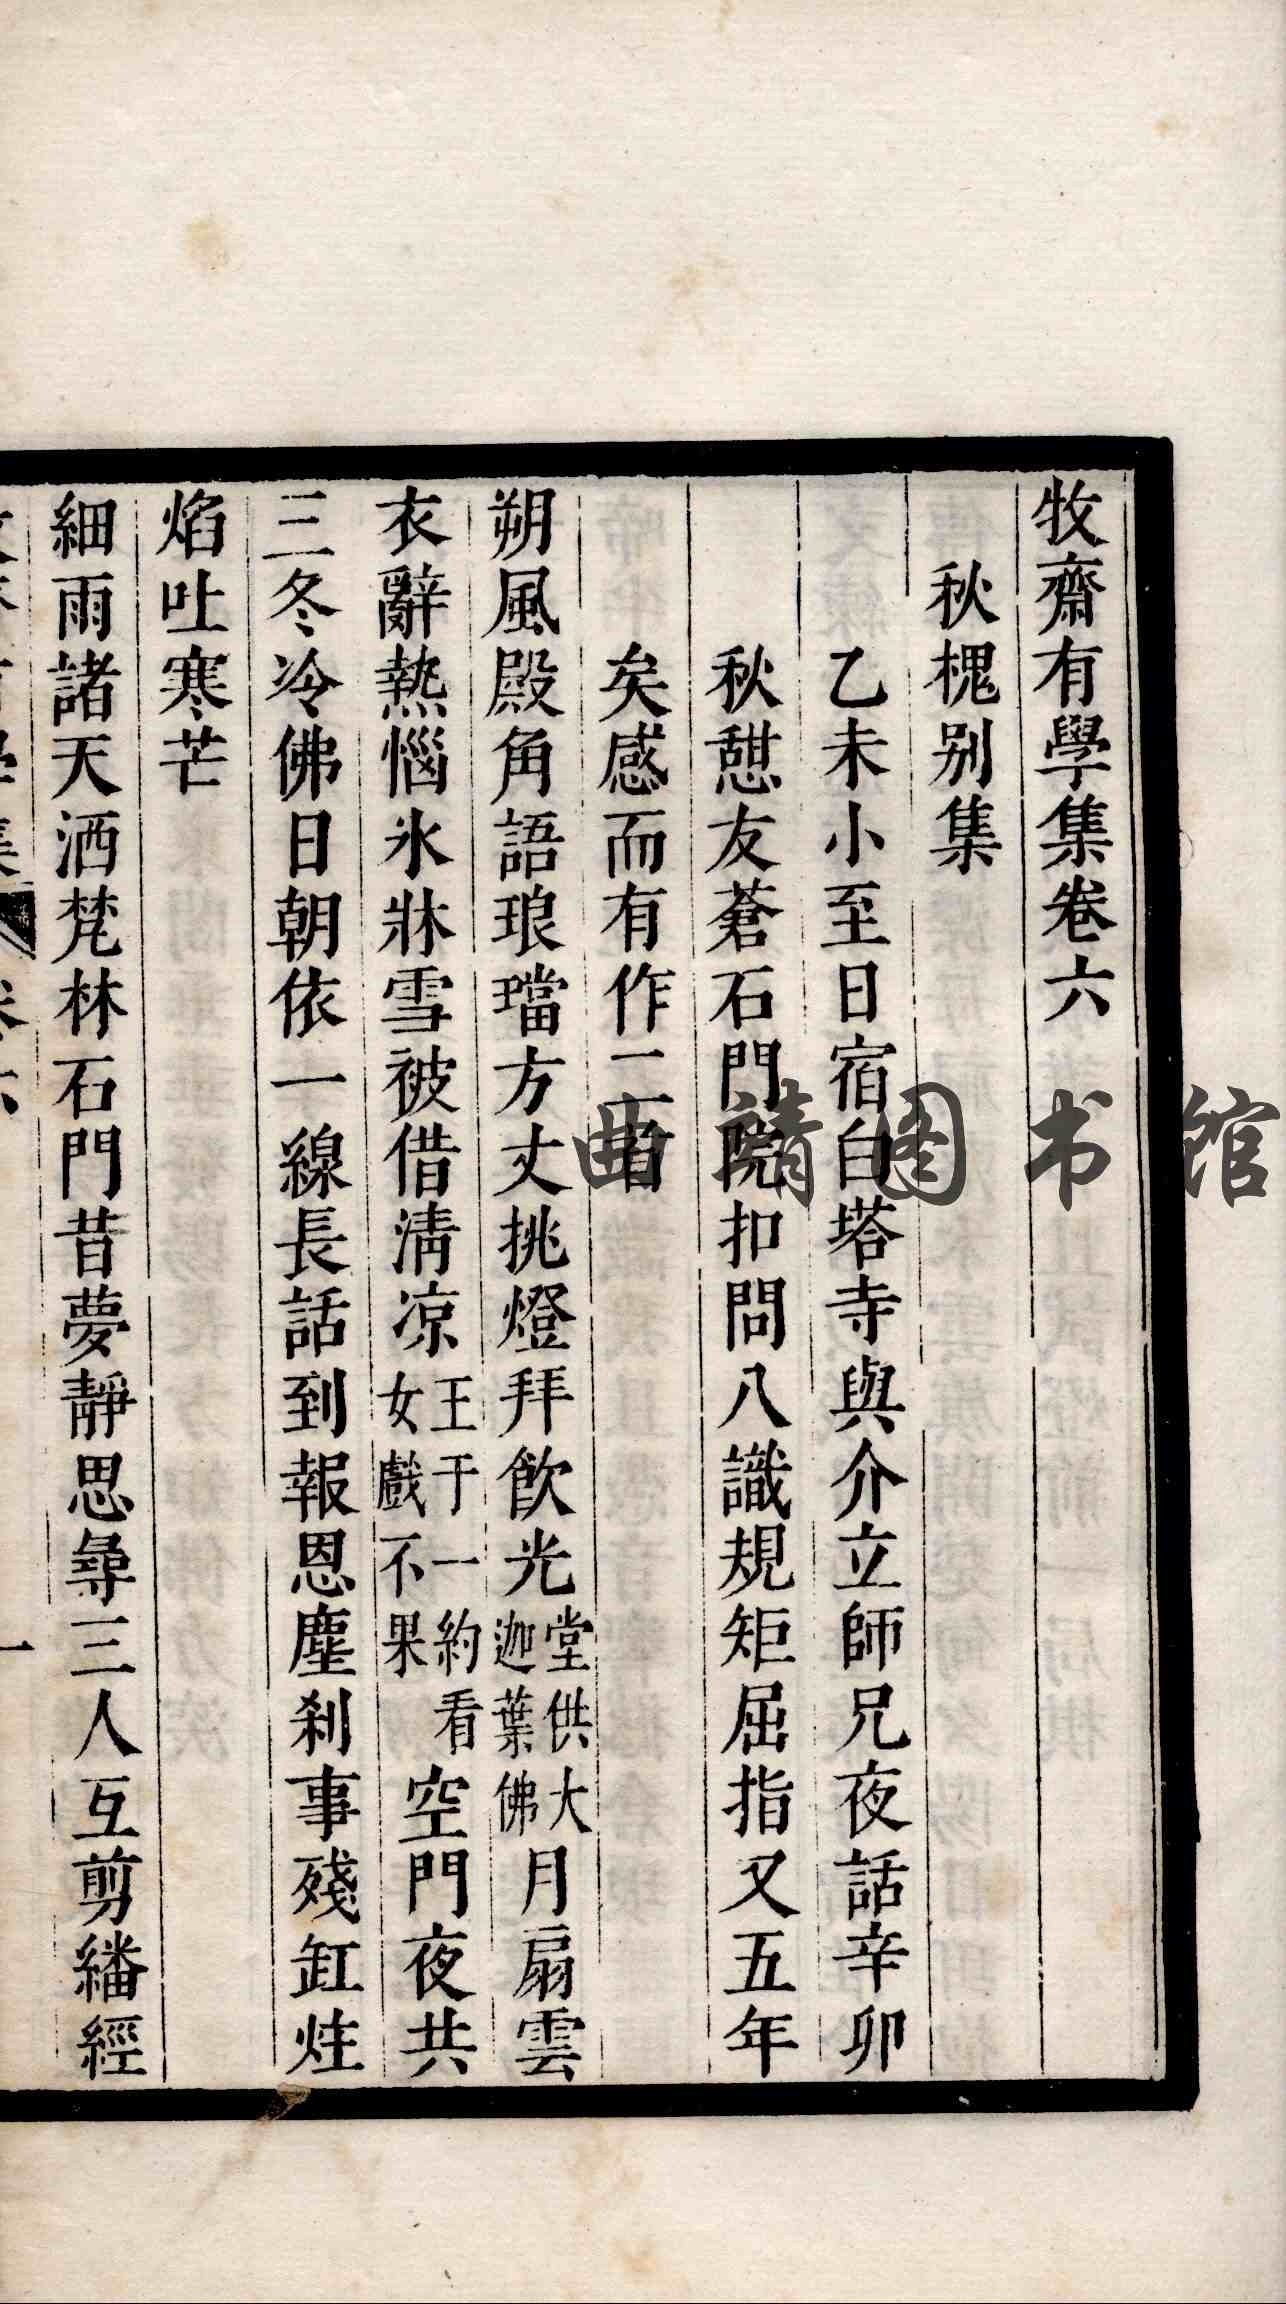 牧齋有學集卷六
秋槐别集
乙未小至日宿白塔寺與介立師兄夜話辛卯
秋憇友蒼石門院扣問八識規矩屈指又五年
矣感而有作二首
朔風殿角語琅璫方丈挑燈拜飲光堂供大迦葉佛月扇雲
衣辭熱惱氷牀雪被借淸凉王于一約看女戲不果空門夜共
三冬冷佛日朝依一線長話到報恩塵刹事殘缸炷
焰吐寒芒
細雨諸天洒梵林石門昔夢靜思尋三人互剪繙經
一
曲靖图书馆